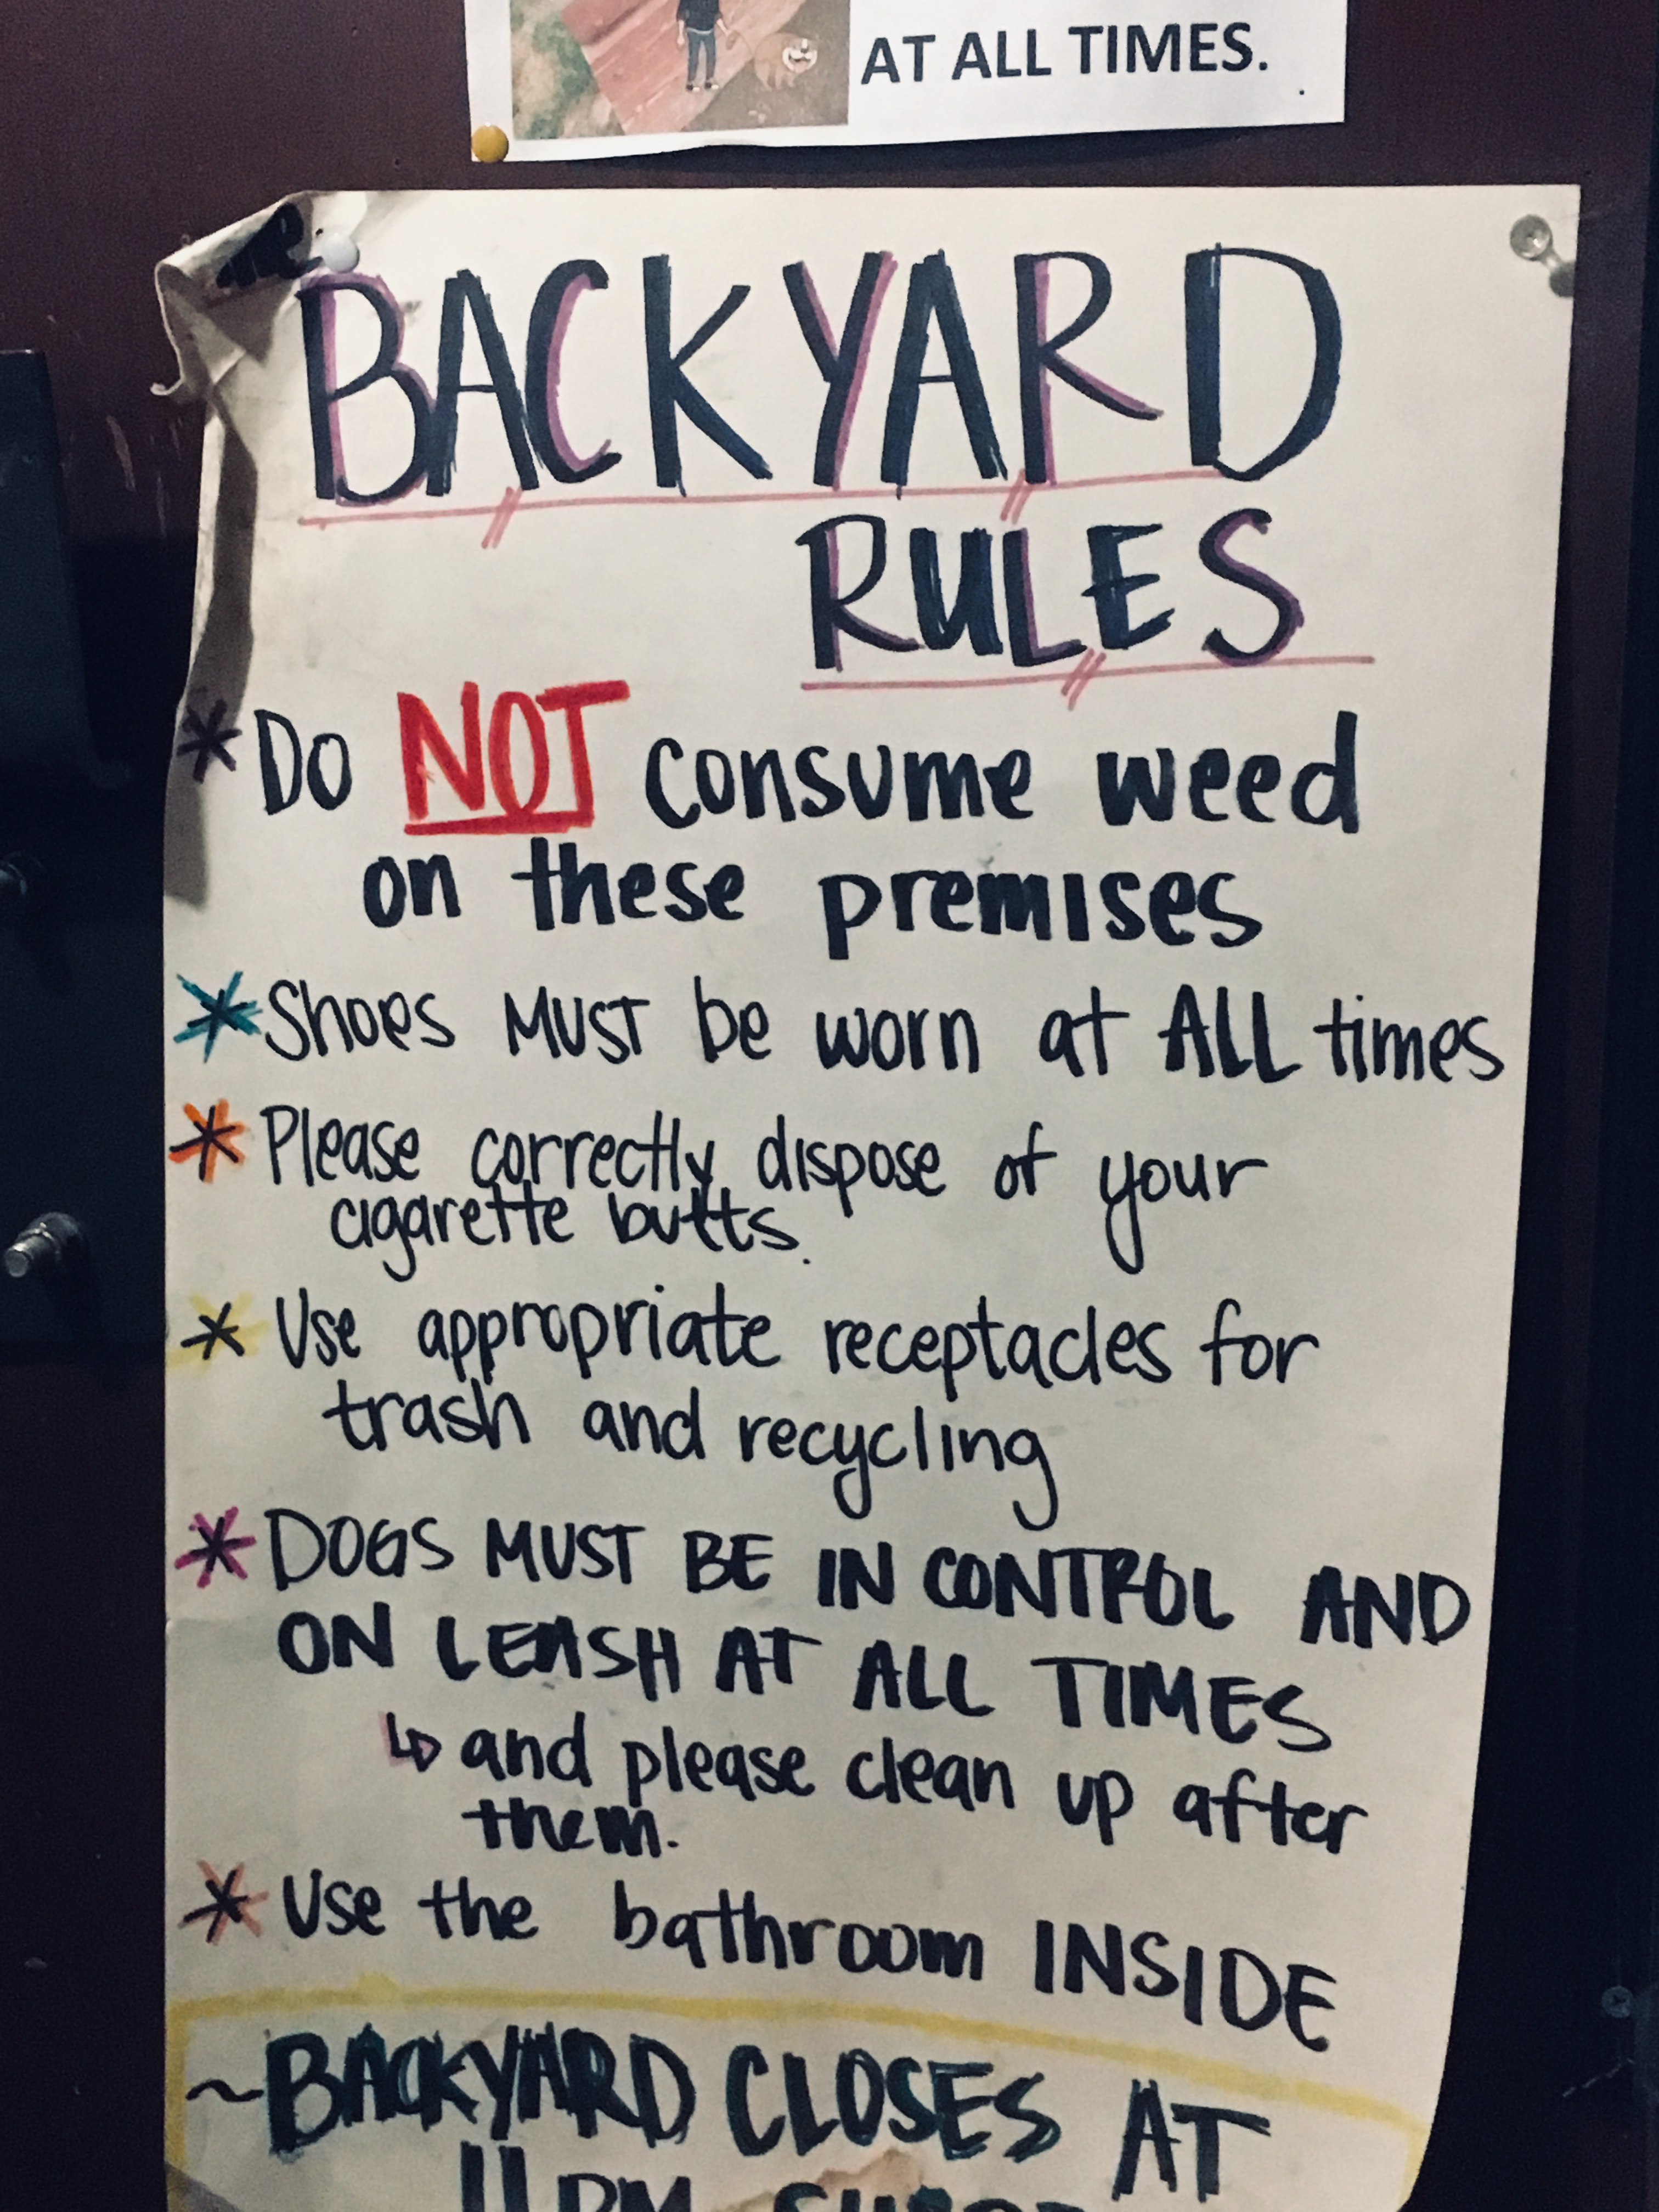 AT ALL TIMES.
BACKYARD
RULES
* Do NOT consume weed
on these premises
* Shoes MUST be worn at ALL times
* Please correctly dispose of your
cigarette butts.
* Use appropriate receptacles for
trash and recycling
* DOGS MUST BE IN CONTROL AND
ON LEASH AT ALL TIMES
↳ and please clean up after
them.
* Use the bathroom INSIDE
~BACKYARD CLOSES AT
11PM